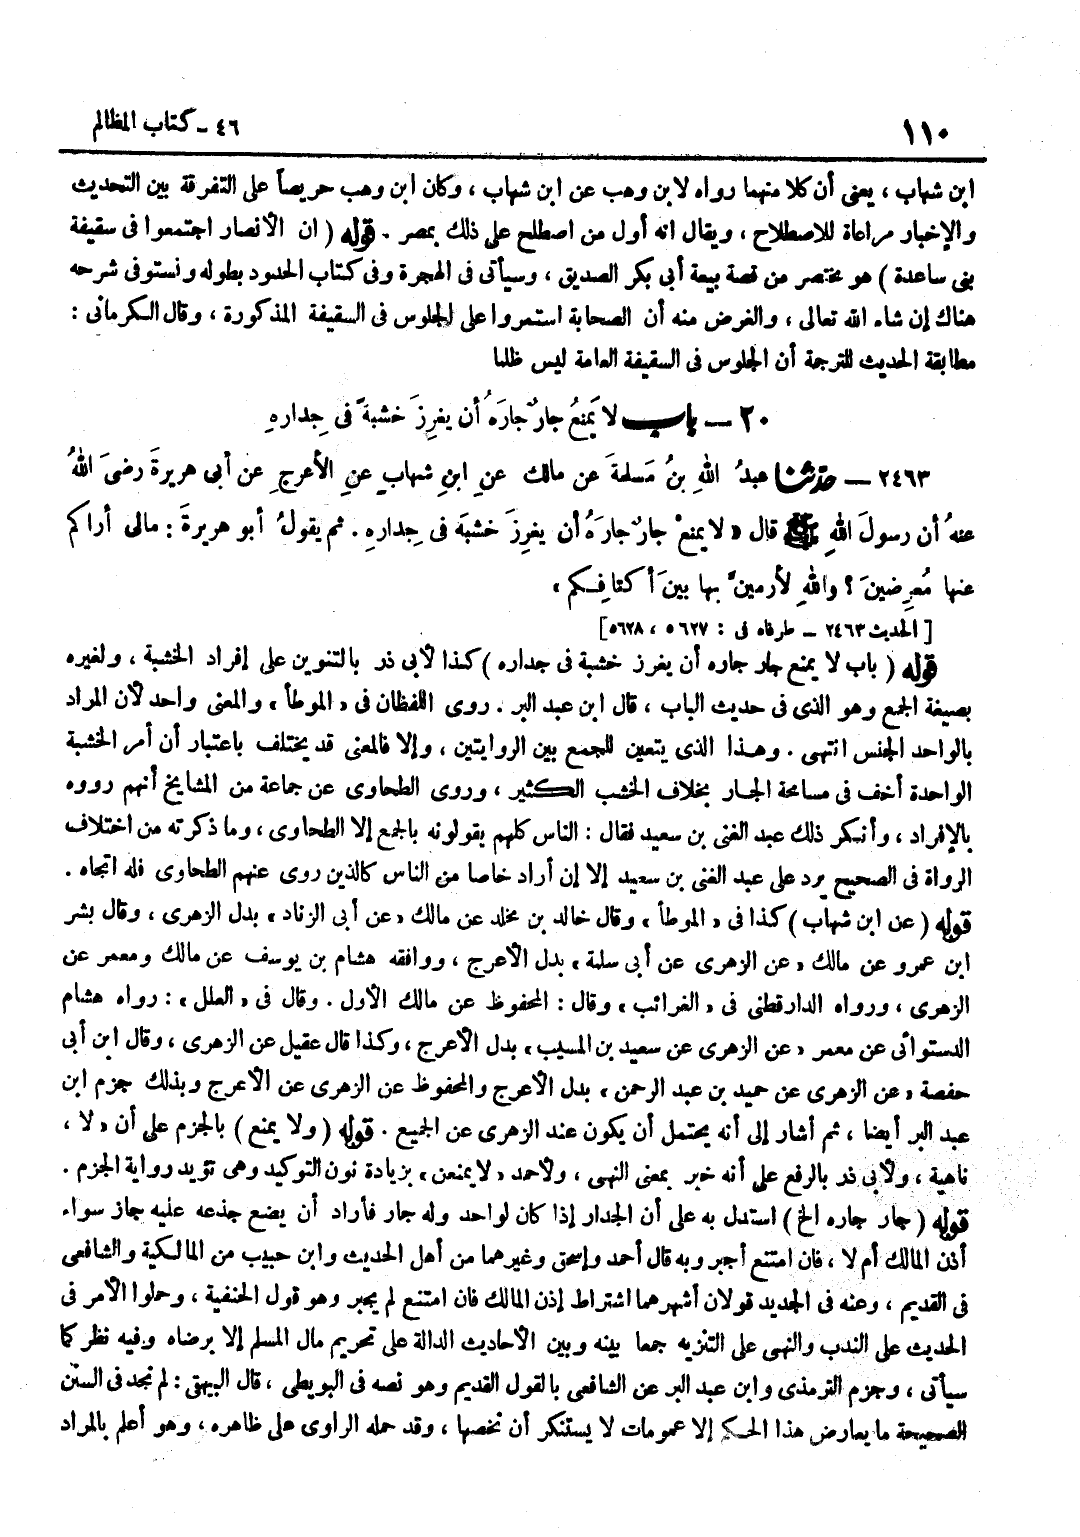 ١١٠
٤٦ - كتاب المظالم
ابن شهاب ، يعنى أن كلا منهما رواه لابن وهب عن ابن شهاب ، وكان ابن وهب حريصاً على التفرقة بين التحديث
والإخبار مراعاة للاصطلاح ، ويقال انه أول من اصطلح على ذلك بمصر . قوله ( ان الأنصار اجتمعوا فى سقيفة
بنى ساعدة ) هو مختصر من قصة بيعة أبى بكر الصديق ، وسيأتى فى الهجرة وفى كتاب الحدود بطوله ونستوفى شرحه
هناك إن شاء الله تعالى ، والغرض منه أن الصحابة استمروا على الجلوس فى السقيفة المذكورة ، وقال الكرمانى :
مطابقة الحديث للترجمة أن الجلوس فى السقيفة العامة ليس ظلما
٢٠ - باب لا يَمنَعُ جارٌ جارَهُ أن يغرِزَ خشبةً فى جِدارهِ
٢٤٦٣ - حدّثنا عبدُ اللهِ بنُ مَسلمةَ عن مالك عنِ ابنِ شهابٍ عنِ الأعرجِ عن أبى هريرةَ رضىَ اللهُ
عنهُ أن رسولَ اللهِ ﷺ قال « لا يمنعْ جارٌ جارَهُ أن يغرِزَ خشبَة فى جِدارهِ . ثم يقولُ أبو هريرةَ : مالى أراكم
عنها مُعرِضينَ ؟ واللهِ لأرمينَّ بها بينَ أكتافِكم »
[ الحديث ٢٤٦٣ - طرفاه فى : ٥٦٢٧ ، ٥٦٢٨ ]
قوله ( باب لا يمنع جار جاره أن يغرز خشبة فى جداره ) كذا لأبى ذر بالتنوين على إفراد الخشبة ، ولغيره
بصيغة الجمع وهو الذى فى حديث الباب ، قال ابن عبد البر . روى اللفظان فى « الموطأ » والمعنى واحد لأن المراد
بالواحد الجنس انتهى . وهذا الذى يتعين للجمع بين الروايتين ، وإلا فالمعنى قد يختلف باعتبار أن أمر الخشبة
الواحدة أخف فى مسامحة الجار بخلاف الخشب الكثير ، وروى الطحاوى عن جماعة من المشايخ أنهم رووه
بالإفراد ، وأنكر ذلك عبد الغنى بن سعيد فقال : الناس كلهم يقولونه بالجمع إلا الطحاوى ، وما ذكرته من اختلاف
الرواة فى الصحيح يرد على عبد الغنى بن سعيد إلا إن أراد خاصا من الناس كالذين روى عنهم الطحاوى فله اتجاه .
قوله ( عن ابن شهاب ) كذا فى « الموطأ » وقال خالد بن مخلد عن مالك « عن أبى الزناد » بدل الزهرى ، وقال بشر
ابن عمرو عن مالك « عن الزهرى عن أبى سلمة » بدل الأعرج ، ووافقه هشام بن يوسف عن مالك ومعمر عن
الزهرى ، ورواه الدارقطنى فى « الغرائب » وقال : المحفوظ عن مالك الأول . وقال فى « العلل » : رواه هشام
الدستوائى عن معمر « عن الزهرى عن سعيد بن المسيب » بدل الأعرج ، وكذا قال عقيل عن الزهرى ، وقال ابن أبى
حفصة « عن الزهرى عن حميد بن عبد الرحمن » بدل الأعرج والمحفوظ عن الزهرى عن الأعرج وبذلك جزم ابن
عبد البر أيضا ، ثم أشار إلى أنه يحتمل أن يكون عند الزهرى عن الجميع . قوله ( ولا يمنع ) بالجزم على أن « لا »
ناهية ، ولأبى ذر بالرفع على أنه خبر بمعنى النهى ، ولأحمد « لا يمنعن » بزيادة نون التوكيد وهى تؤيد رواية الجزم .
قوله ( جار جاره الخ ) استدل به على أن الجدار إذا كان لواحد وله جار فأراد أن يضع جذعه عليه جاز سواء
أذن المالك أم لا ، فان امتنع أجبر وبه قال أحمد وإسحق وغيرهما من أهل الحديث وابن حبيب من المالكية والشافعى
فى القديم ، وعنه فى الجديد قولان أشهرهما اشتراط إذن المالك فان امتنع لم يجبر وهو قول الحنفية ، وحملوا الأمر فى
الحديث على الندب والنهى على التنزيه جمعا بينه وبين الأحاديث الدالة على تحريم مال المسلم إلا برضاه وفيه نظر كما
سيأتى ، وجزم الترمذى وابن عبد البر عن الشافعى بالقول القديم وهو نصه فى البويطى ، قال البيهقى : لم نجد فى السنن
الصحيحة ما يعارض هذا الحكم إلا عمومات لا يستنكر أن نخصها ، وقد حمله الراوى على ظاهره ، وهو أعلم بالمراد